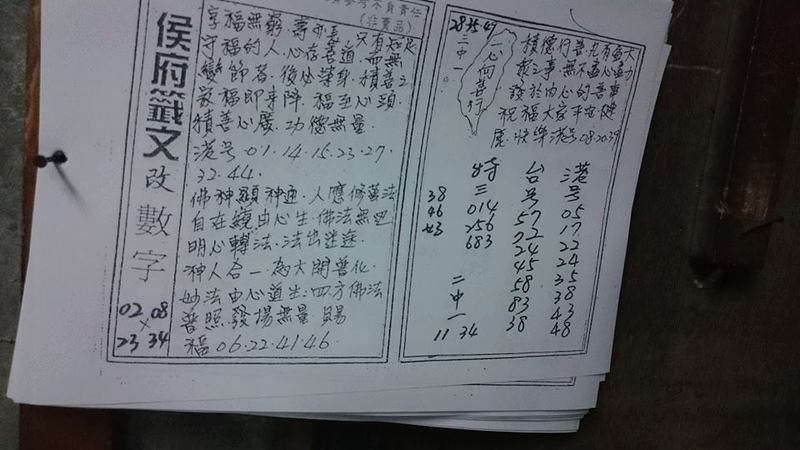 參考不負責任
(非賣品)
侯府籤文改數字
02 08
×
23 34
享福無窮．壽亦長．只有知足
守福的人．心存善道．而無
變節者．後必榮身．積善之
家福即來降．福至心頭．
積善心廣．功德無量．
港号 01.14.15.23.27.
32.44.
佛神顯神通．人應修善法
自在緣由心生．佛法無邊
明心轉法．法出迷途．
神人合一．為大開善化．
妙法由心道生．四方佛法
普照發揚無量．賜
福 06.22.41.46.
28 35 47
二中一
一心向善行
積德行善
求之事無不盡心盡力
發於由心的善事
祝福大家平安健
康．快樂港号 08 20 39
港号
05
17
22
24
35
38
43
48
台号
57
72
24
45
58
83
38
特三
014
256
683
38
46
二中一
11 34